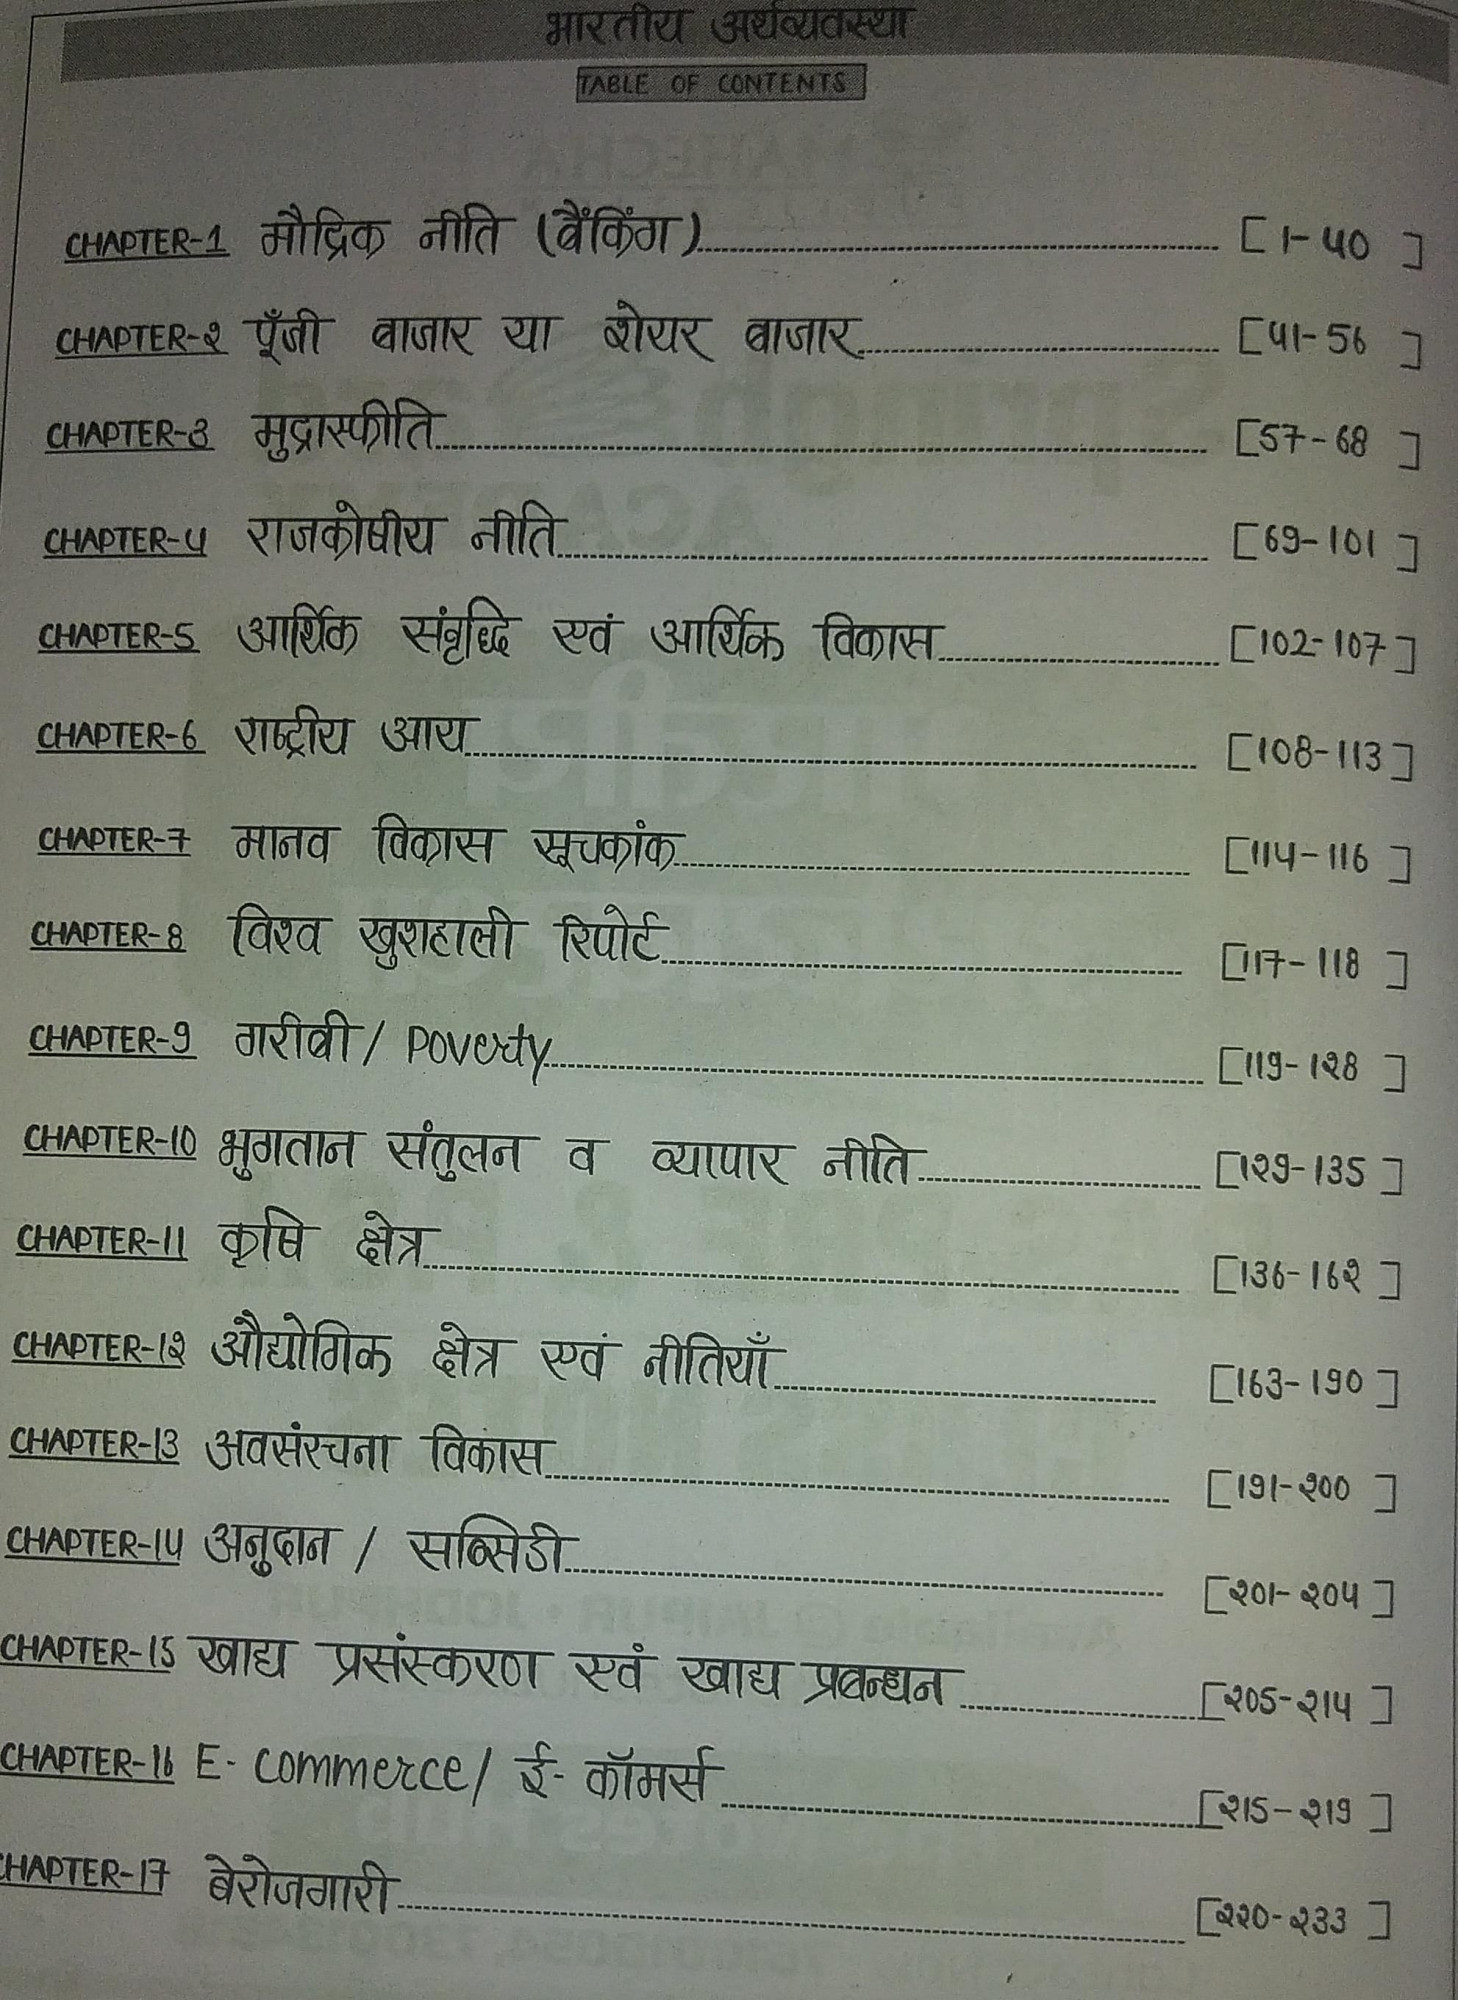 भारतीय अर्थव्यवस्था
TABLE OF CONTENTS
CHAPTER-1 मौद्रिक नीति (बैंकिंग) [1-40]
CHAPTER-2 पूँजी बाजार या शेयर बाजार [41-56]
CHAPTER-3 मुद्रास्फीति [57-68]
CHAPTER-4 राजकोषीय नीति [69-101]
CHAPTER-5 आर्थिक संवृद्धि एवं आर्थिक विकास [102-107]
CHAPTER-6 राष्ट्रीय आय [108-113]
CHAPTER-7 मानव विकास सूचकांक [114-116]
CHAPTER-8 विश्व खुशहाली रिपोर्ट [117-118]
CHAPTER-9 गरीबी/ Poverty [119-128]
CHAPTER-10 भुगतान संतुलन व व्यापार नीति [129-135]
CHAPTER-11 कृषि क्षेत्र [136-162]
CHAPTER-12 औद्योगिक क्षेत्र एवं नीतियाँ [163-190]
CHAPTER-13 अवसंरचना विकास [191-200]
CHAPTER-14 अनुदान / सब्सिडी [201-204]
CHAPTER-15 खाद्य प्रसंस्करण एवं खाद्य प्रबन्धन [205-214]
CHAPTER-16 E-commerce/ ई-कॉमर्स [215-219]
CHAPTER-17 बेरोजगारी [220-233]